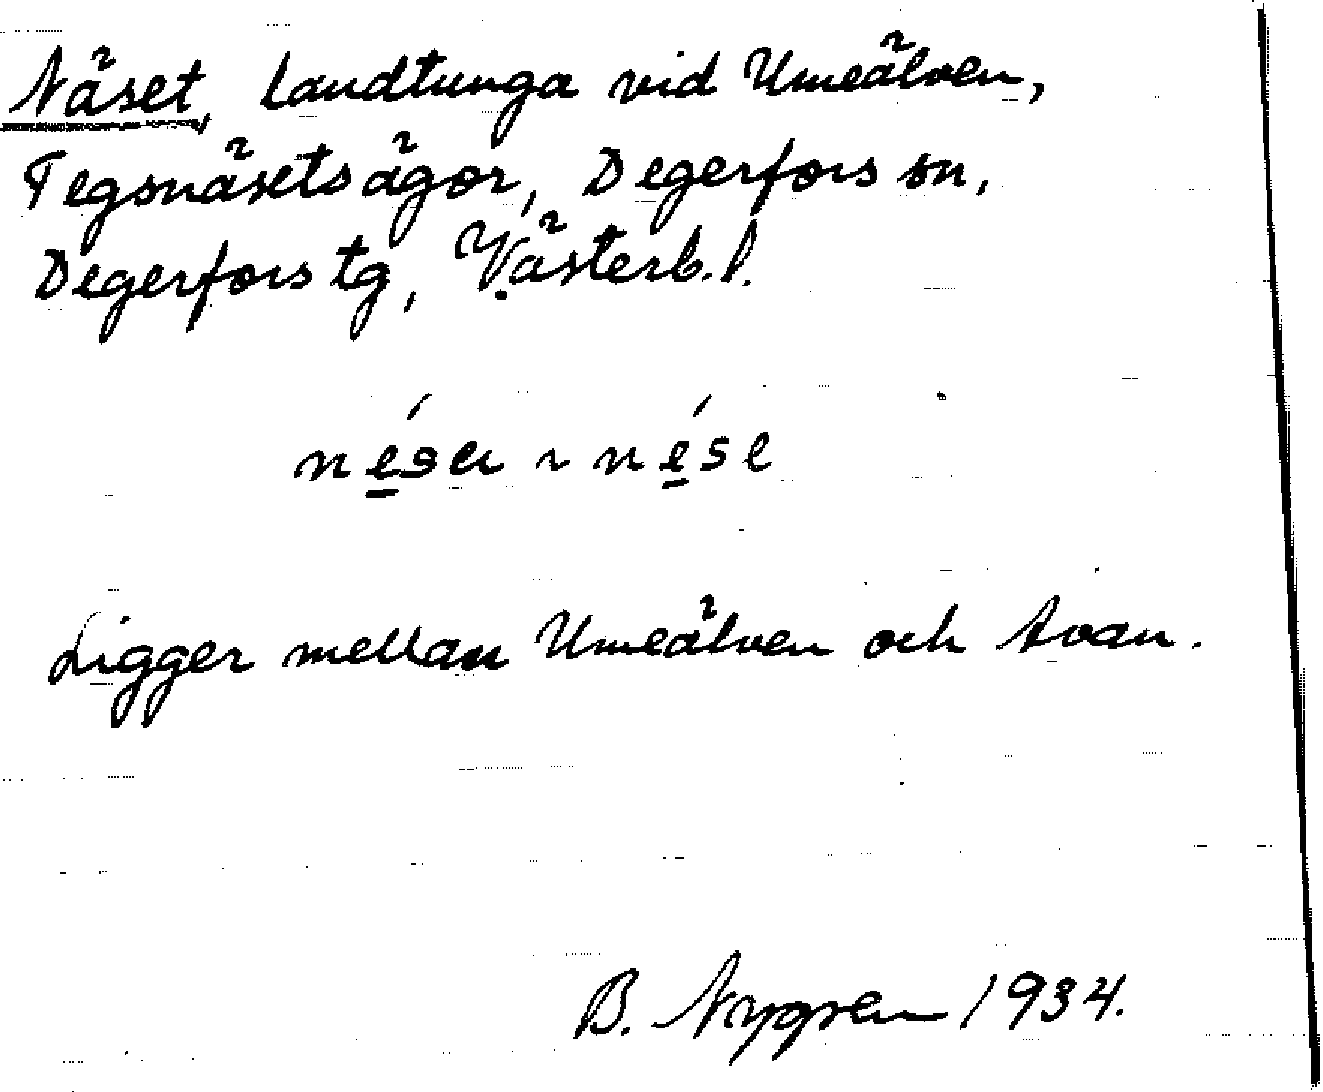 Näset, Landtunga vid Umeälven,
Tegsnäsets ägor, Degerfors sn,
Degerfors tg, Västerb. l.
Ligger mellan Umeälven och Avan.
B. Nygren 1934.